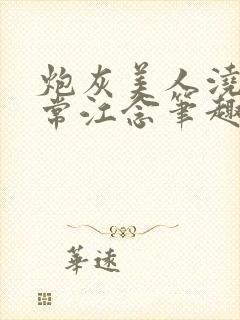 炮灰美人澆
常江念筆趣
華遠